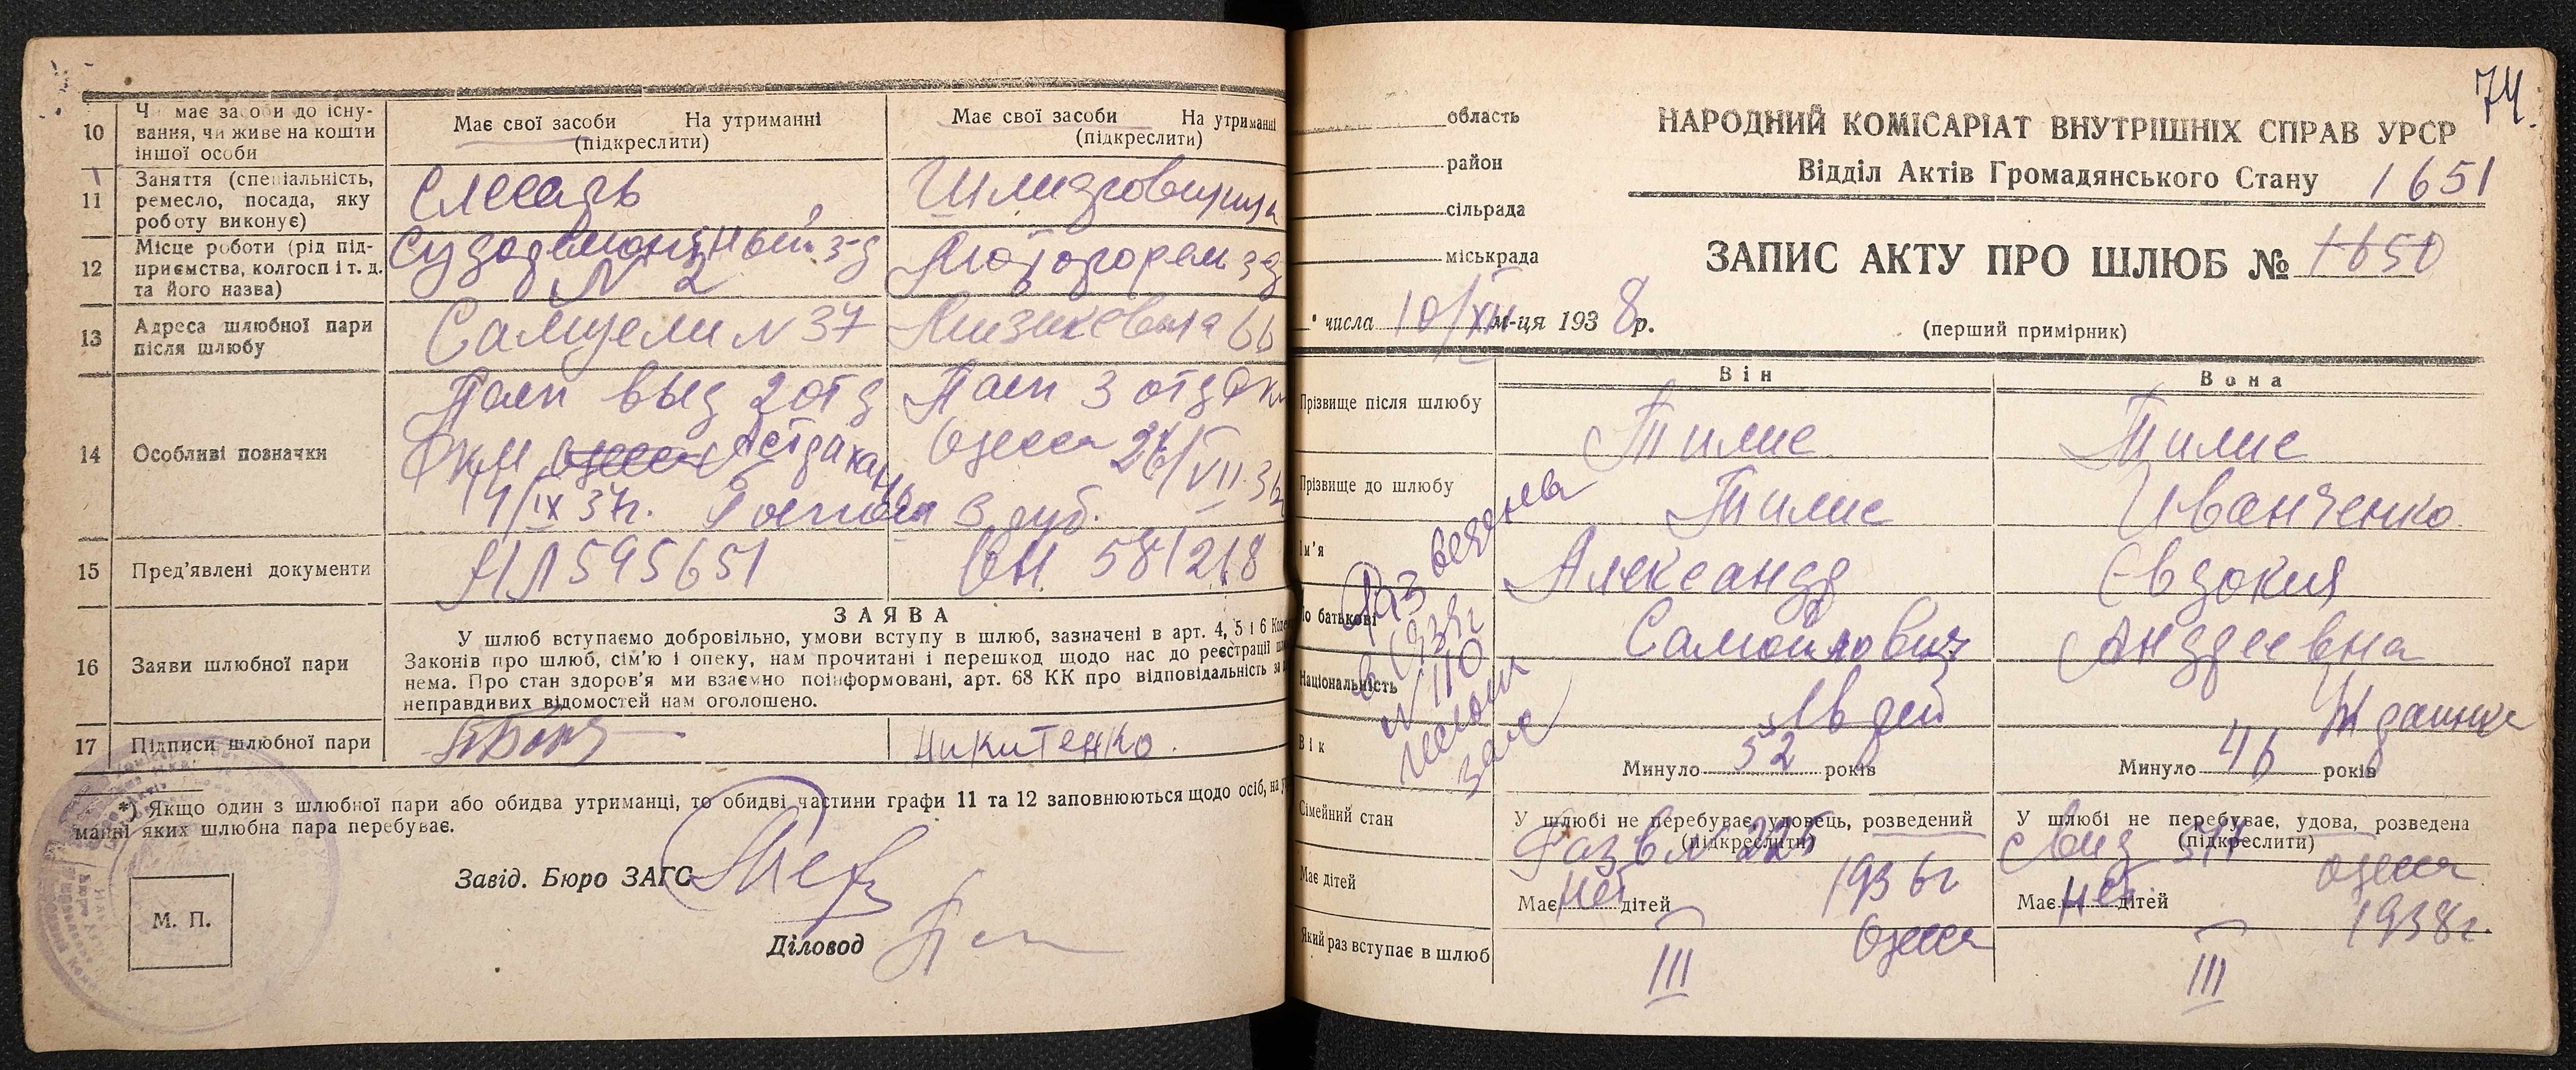 10
Чи має засоби до існу-
вання, чи живе на кошти
іншої особи
Має свої засоби На утриманні
(підкреслити)
Має свої засоби На утриманні
(підкреслити)
11
Заняття (спеціальність,
ремесло, посада, яку
роботу виконує)
Слесарь
12
Місце роботи (рід під-
приємства, колгосп і т. д.
та його назва)
Судоремонтный з-д
N 2
13
Адреса шлюбної пари
після шлюбу
N 37
66
14
Особливі позначки
Пасп выд 2 отд
РКМ Астрахань
/IX 37г.
Пасп 3 отд РКМ
Одесса 26/VII 36
3 руб.
15
Пред'явлені документи
595651
581218
16
Заяви шлюбної пари
ЗАЯВА
У шлюб вступаємо добровільно, умови вступу в шлюб, зазначені в арт. 4, 5 і 6
Законів про шлюб, сім'ю і опеку, нам прочитані і перешкод щодо нас до реєстрації
нема. Про стан здоров'я ми взаємно поінформовані, арт. 68 КК про відповідальність за
неправдивих відомостей нам оголошено.
17
Підписи шлюбної пари
Никитенко.
*) Якщо один з шлюбної пари або обидва утриманці, то обидві частини графи 11 та 12 заповнюються щодо осіб, на
манні яких шлюбна пара перебуває.
Завід. Бюро ЗАГС
М. П.
Діловод
74.
область
район
сільрада
міськрада
НАРОДНИЙ КОМІСАРІАТ ВНУТРІШНІХ СПРАВ УРСР
Відділ Актів Громадянського Стану
1651
ЗАПИС АКТУ ПРО ШЛЮБ № 1650
числа 10/XII м-ця 1938 р.
(перший примірник)
Він
Вона
Прізвище після шлюбу
Тилис
Тилис
Прізвище до шлюбу
Тилис
Иванченко
Ім'я
Александр
Євдокия
По батькові
Самойлович
Андреевна
Національність
Еврей
Вік
Минуло 52 років
Минуло 46 років
Разведены
в 1939г
N 110
Сімейний стан
У шлюбі не перебуває, удовець, розведений
(підкреслити)
Разв N 225
1936г
Одесса
У шлюбі не перебуває, удова, розведена
(підкреслити)
Одесса
1938г.
Має дітей
Має нет дітей
Має нет дітей
Який раз вступає в шлюб
III
III